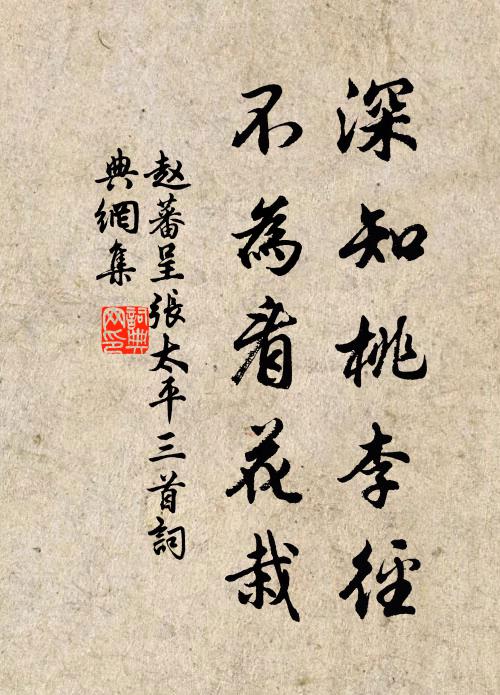 深知桃李径
不為看花栽
赵蕃呈張太平三首詞
典網集
詞典网印